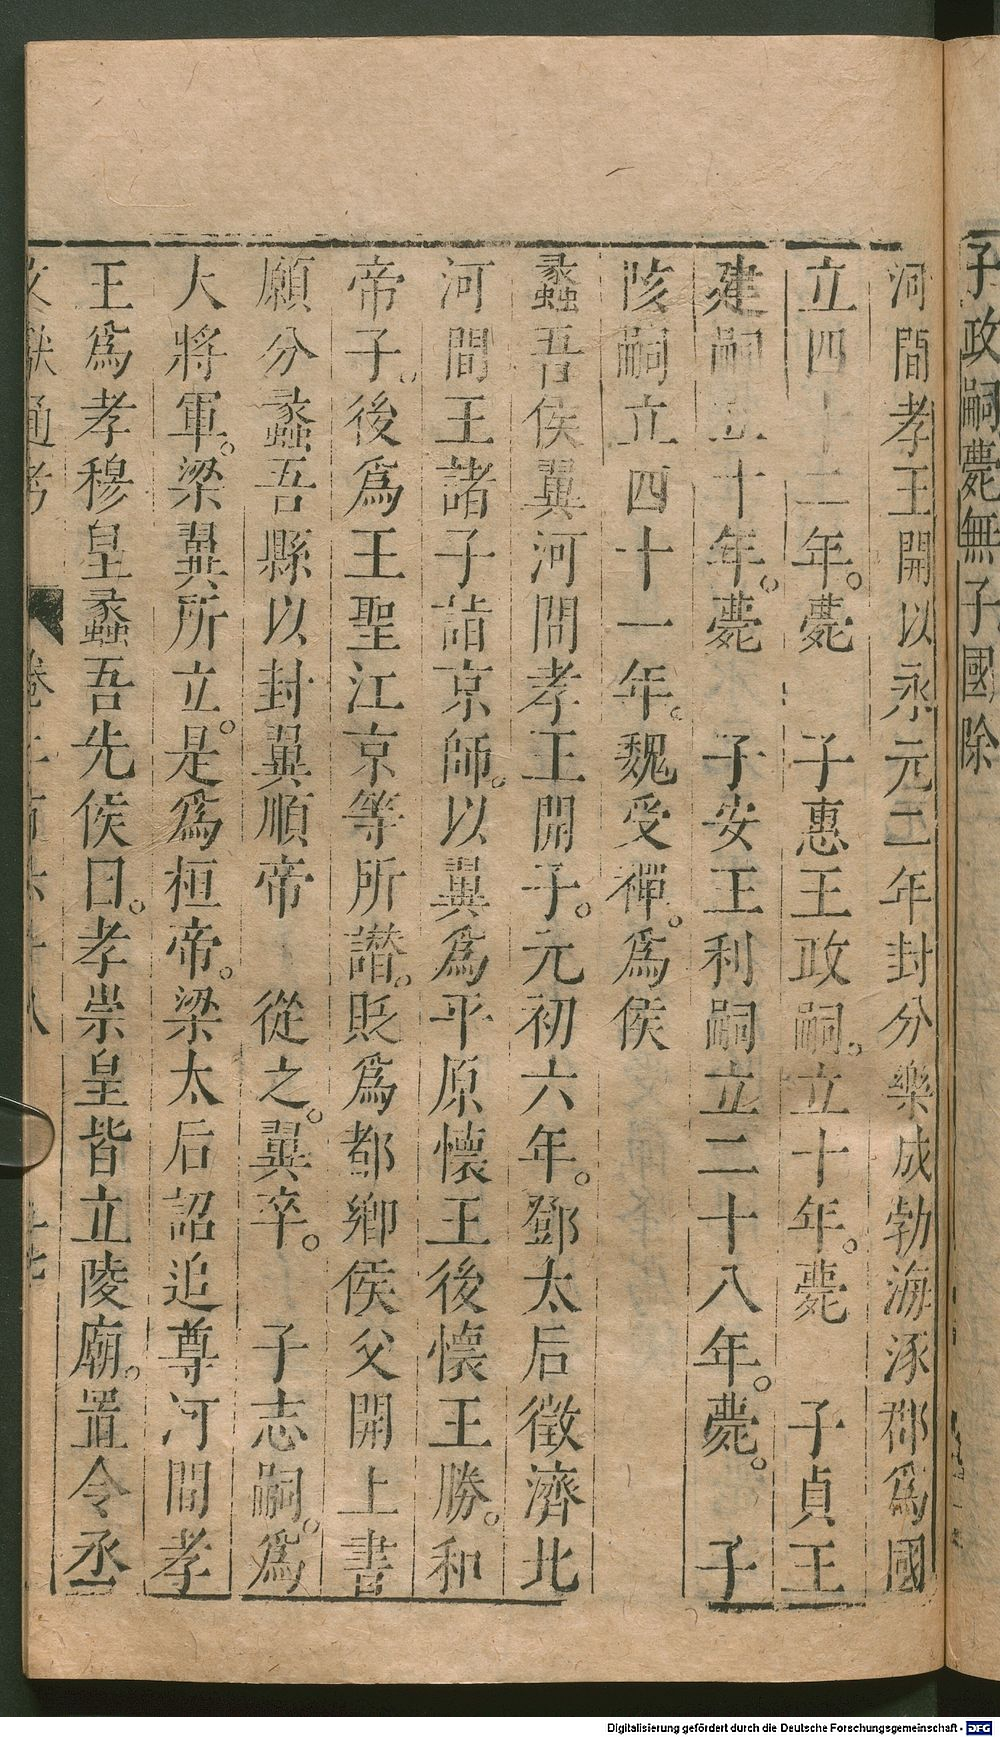 子政嗣薨無子國除
河間孝王開以永元二年封分樂成勃海涿郡爲國
立四十二年。薨　子惠王政嗣。立十年。薨　子貞王
建嗣立十年。薨　子安王利嗣立二十八年。薨。　子
陔嗣立四十一年。魏受禪。爲侯
蠡吾侯翼河間孝王開子。元初六年。鄧太后徵濟北
河間王諸子詣京師。以翼爲平原懷王後懷王勝。和
帝子。後爲王聖江京等所譖。貶爲都鄉侯父開上書
願分蠡吾縣以封翼順帝　從之。翼卒。　子志嗣。爲
大將軍。梁冀所立。是爲桓帝。梁太后詔追尊河間孝
王爲孝穆皇蠡吾先侯曰。孝崇皇皆立陵廟。置令丞
文獻通考　卷二百六十八
Digitalisierung gefördert durch die Deutsche Forschungsgemeinschaft - DFG